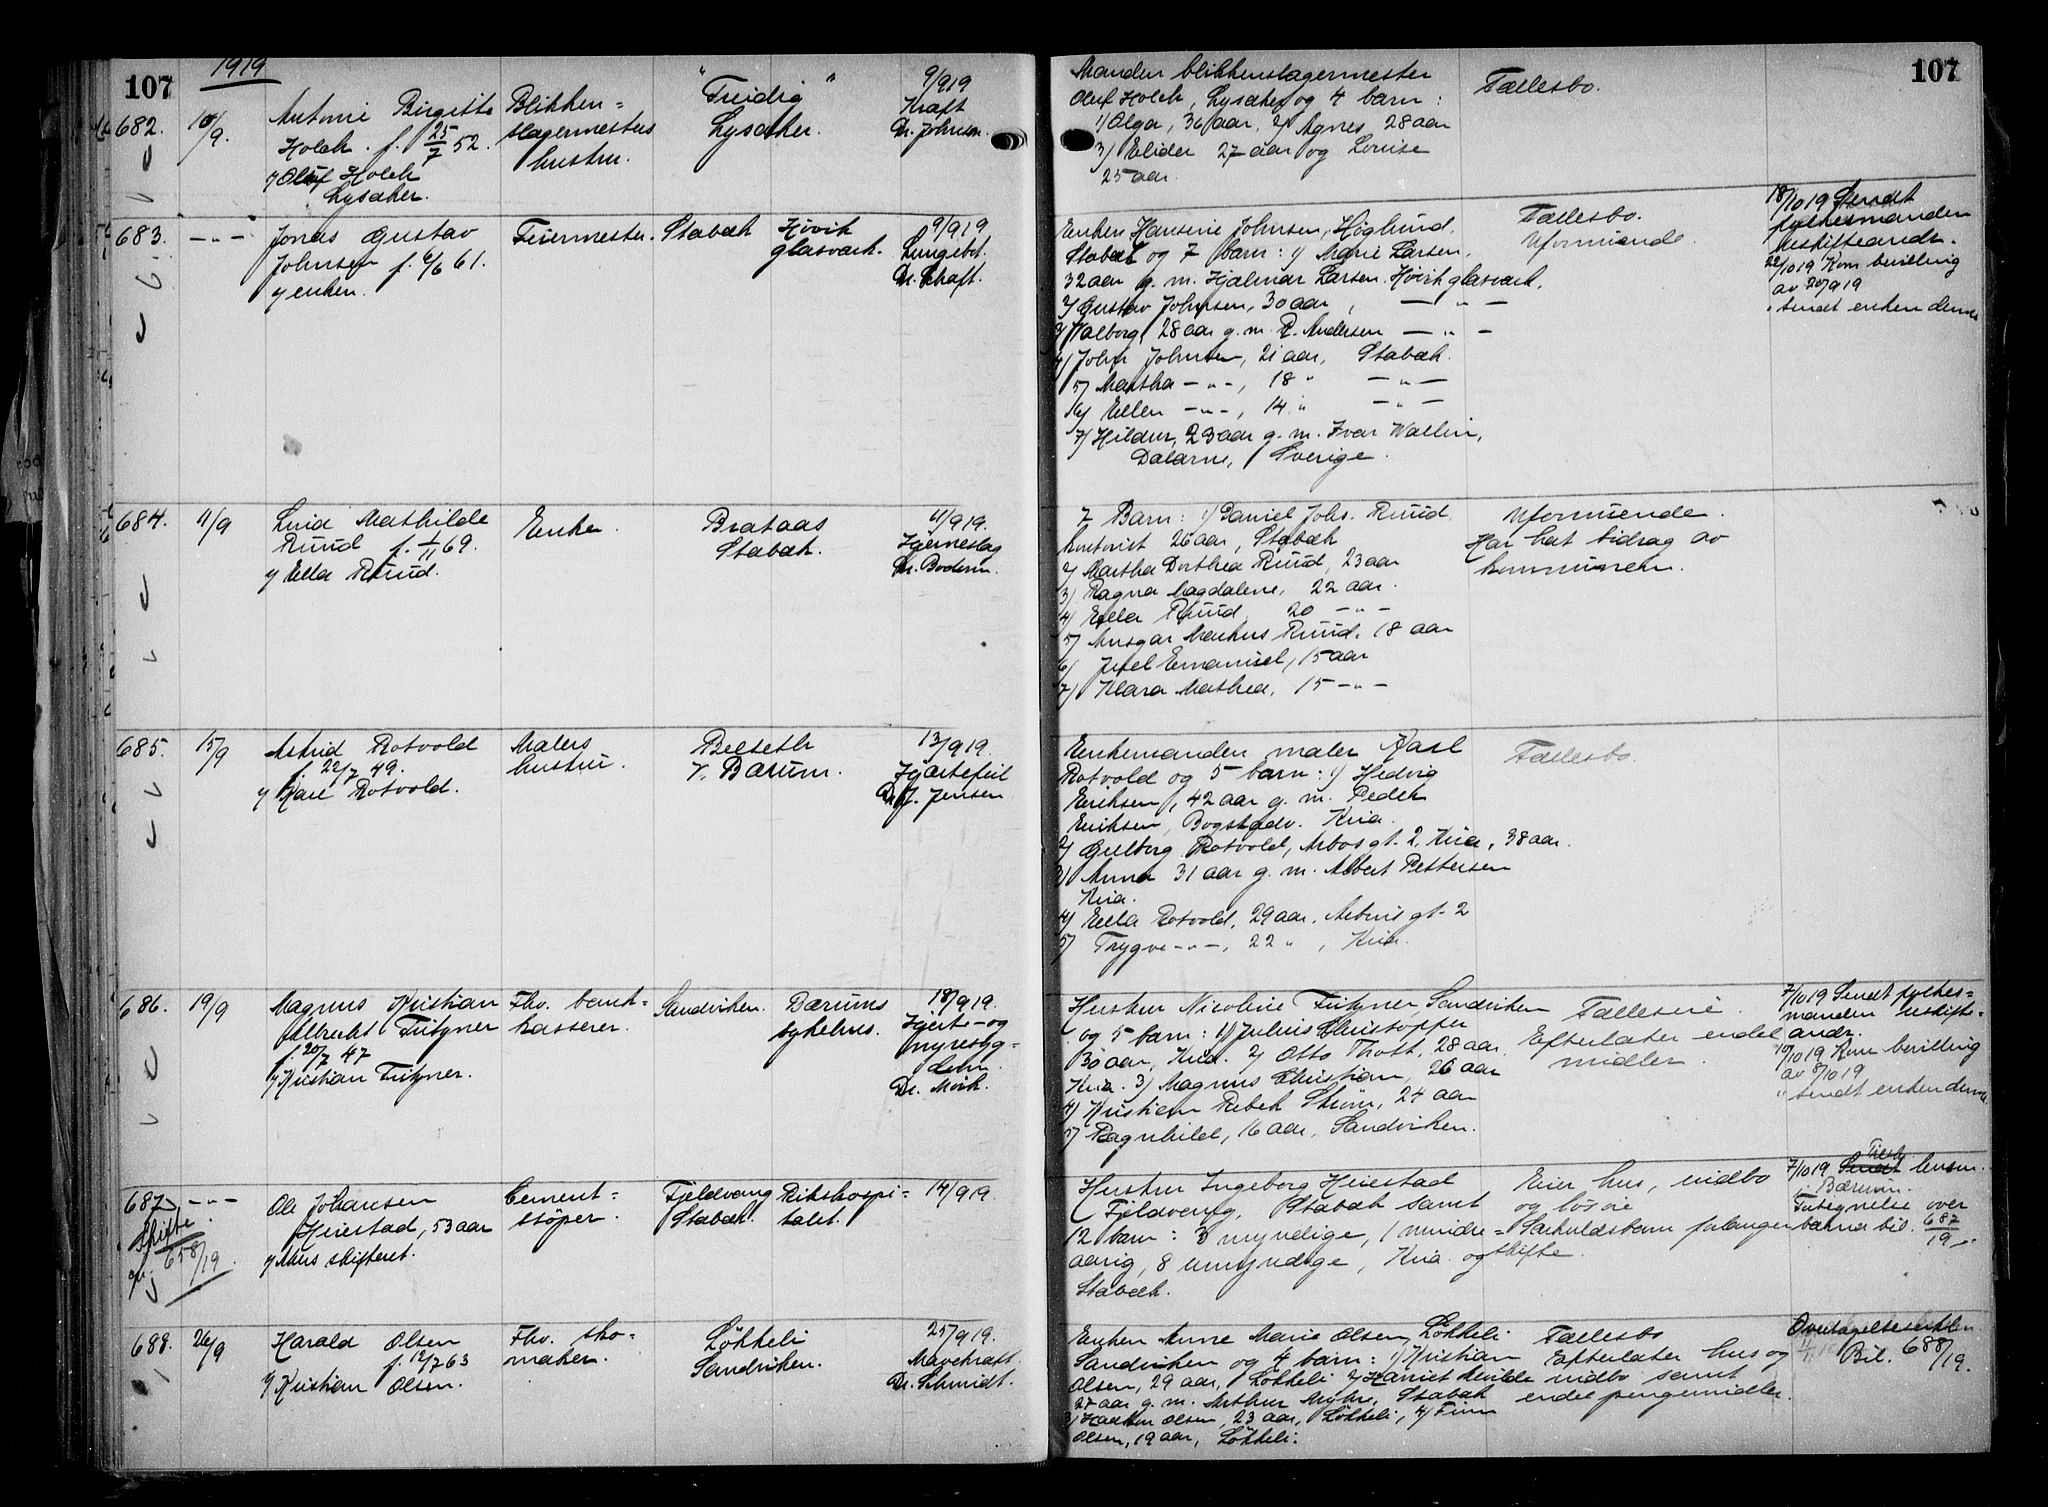 107
1919
682.
10/9.
Antonie Birgitte
Holch. f. 25/7 52.
v/ Oluf Holch
Lysaker.
Blikken=
slagermesters
hustru.
"Freidig"
Lysaker.
9/9 19
Kræft
Dr. Johnsen.
683.
— " —
Jonas Gustav
Johnsen f. 6/6 61.
v/ enken.
Feiermester.
Stabæk
Høvik
glasværk.
9/9 19
Lungebet.
Dr. Schaft.
684.
11/9
Lina Mathilde
Ruud f. 1/11 69.
v/ Ella Ruud.
Enke.
Brataas
Stabæk.
11/9 19.
Hjerneslag
685.
15/9
Astrid Rotvold
f. 22/7 49.
v/ Karl Rotvold.
Malers
hustru.
Belseth
V. Bærum.
13/9 19.
Hjertefeil
Dr. J. Jensen
686.
19/9
Magnus Kristian
Albrecht Fritzner
f. 20/7 47
v/ Kristian Fritzner.
Fhv. bank=
kasserer.
Sandviken.
Bærums
sykehus.
18/9 19.
Hjerte- og
nyresyg=
dom.
Dr. Mörk.
687
— " —
Skifte
pr. 658/19.
Ole Johansen
Heiestad, 53 aar
v/ Anus skifteret.
Cement=
støper.
Fjeldvang
Stabæk.
Rikshospi=
talet.
14/9 19.
688.
26/9
Harald Olsen
f. 12/7 63
v/ Kristian Olsen.
Fhv. sko=
maker.
Løkkeli
Sandviken.
25/9 19.
Mavekræft.
Dr. Schmidt.
107
Manden blikkenslagermester
Oluf Holch, Lysaker og 4 barn:
1/ Olga, 36 aar, 2/ Agnes, 28 aar
3/ Elider 27 aar og Louise
25 aar.
Fællesbo.
Enken Hansine Johnsen, Höglund.
Stabæk og 7 barn: 1/ Marie Larsen,
32 aar g. m. Hjalmar Larsen, Høvik glasværk.
2/ Gustav Johnsen, 30 aar, — " —
3/ Valborg, 28 aar g. m. R. Andersen — " —
4/ John Johnsen, 21 aar, Stabæk.
5/ Martha — " —, 18 " — " —
6/ Ellen — " —, 14 " — " —
7/ Hildur, 23 aar g. m. Ivar Wallin,
Dalarne, Sverige.
Fællesbo.
Uformuende.
18/10 19 Sendt
fylkesmanden
uskifteandr.
22/10 19 Kom bevilling
av 20/9 19
" sendt enken denne
7 Barn: 1/ Daniel Johs. Ruud
26 aar, Stabæk
2/ Martha Dorthea Ruud, 23 aar
3/ Ragna Magdalene, 22 aar.
4/ Ella Ruud, 20 — " —
5/ Ansgar Menkus Ruud, 18 aar
6/ Juel Emanuel, 15 aar
7/ Klara Mathea, 15 — " —
Uformuende.
Har hat bidrag av
kommunen.
Enkemanden maler Karl
Rotvold og 5 barn: 1/ Hedvig
Eriksen, 42 aar g. m. Peder
Eriksen, Bogstadv. Kria.
2/ Gulborg Rotvold, Arbosgt. 2, Kria, 38 aar.
3/ Anna 31 aar g. m. Albert Pettersen
Kria.
4/ Ella Rotvold, 29 aar, Arbusgt. 2
5/ Trygve — " —, 22 ", Kria.
Fællesbo.
Hustru Nicoline Fritzner, Sandviken
og 5 barn: 1/ Julius Christopher
30 aar, Kria. 2/ Otto Thott, 28 aar.
Kria. 3/ Magnus Christian, 26 aar
4/ Kristian Rebek Strøm, 24 aar
5/ Ragnhild, 16 aar, Sandviken.
Fælleseie.
Efterlater endel
midler.
7/10 19 Sendt fylkes=
manden uskifte=
andr.
10/10 19 Kom bevilling
av 8/10 19
" sendt enken denne
Hustru Ingeborg Heiestad
Fjeldvang, Stabæk samt
12 barn: 3 myndige, 1 mindre=
aarig, 8 umyndige, Kria. og
Stabæk.
Eier hus, indbo
og løsøie
Særkuldsbarn forlanger
skifte.
7/10 19 Sendt Tilsk. lensm.
i Bærum.
Tutegnelse over
barna bil. 687/19.
Enken Anne Marie Olsen, Løkkeli
Sandviken og 4 barn: 1/ Kristian
Olsen, 29 aar, Løkkeli 2/ Harriet Alvilde
27 aar g. m. Arthur Myhre, Stabæk
3/ Haakon Olsen, 23 aar, Løkkeli, 4/ Finn
Olsen, 19 aar, Løkkeli.
Fællesbo
Efterlater hus og
indbo samt
endel pengemidler.
Overtagelseserklæn
Bil. 688/19.